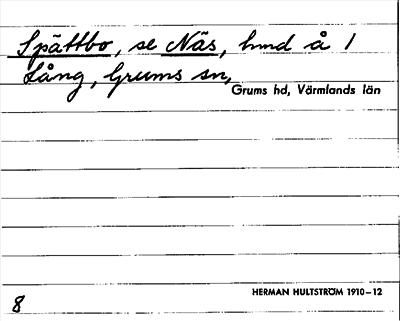 Spättbo, se Näs, hmd å 1
Lång, Grums sn,
Grums hd, Värmlands län
HERMAN HULTSTRÖM 1910–12
8